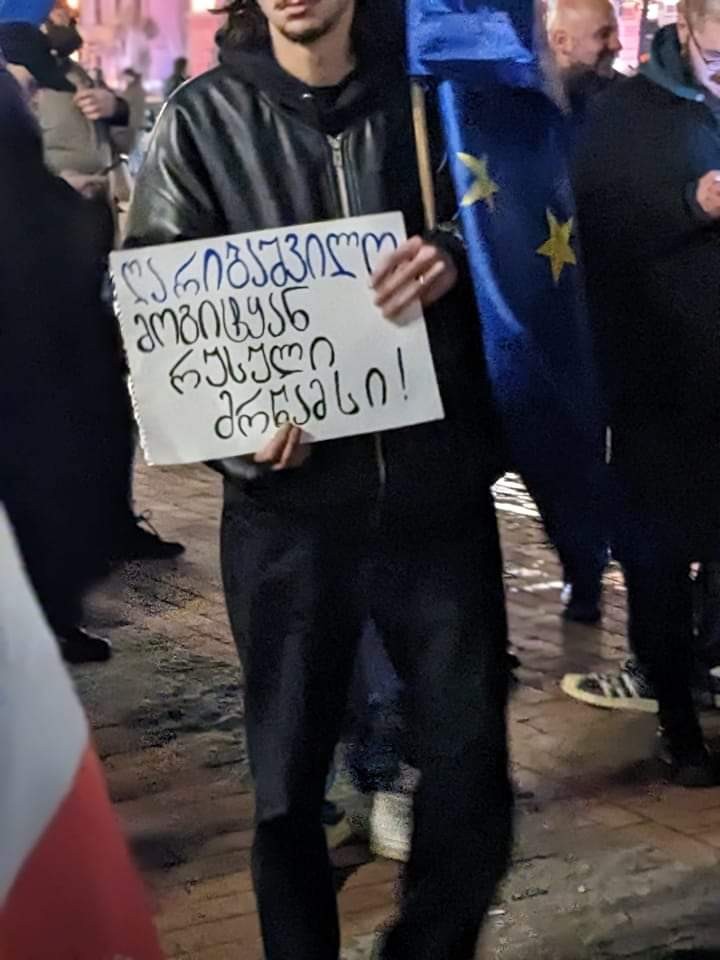 ღარიბაშვილო
მოგიტყან
რუსული
მრწამსი!